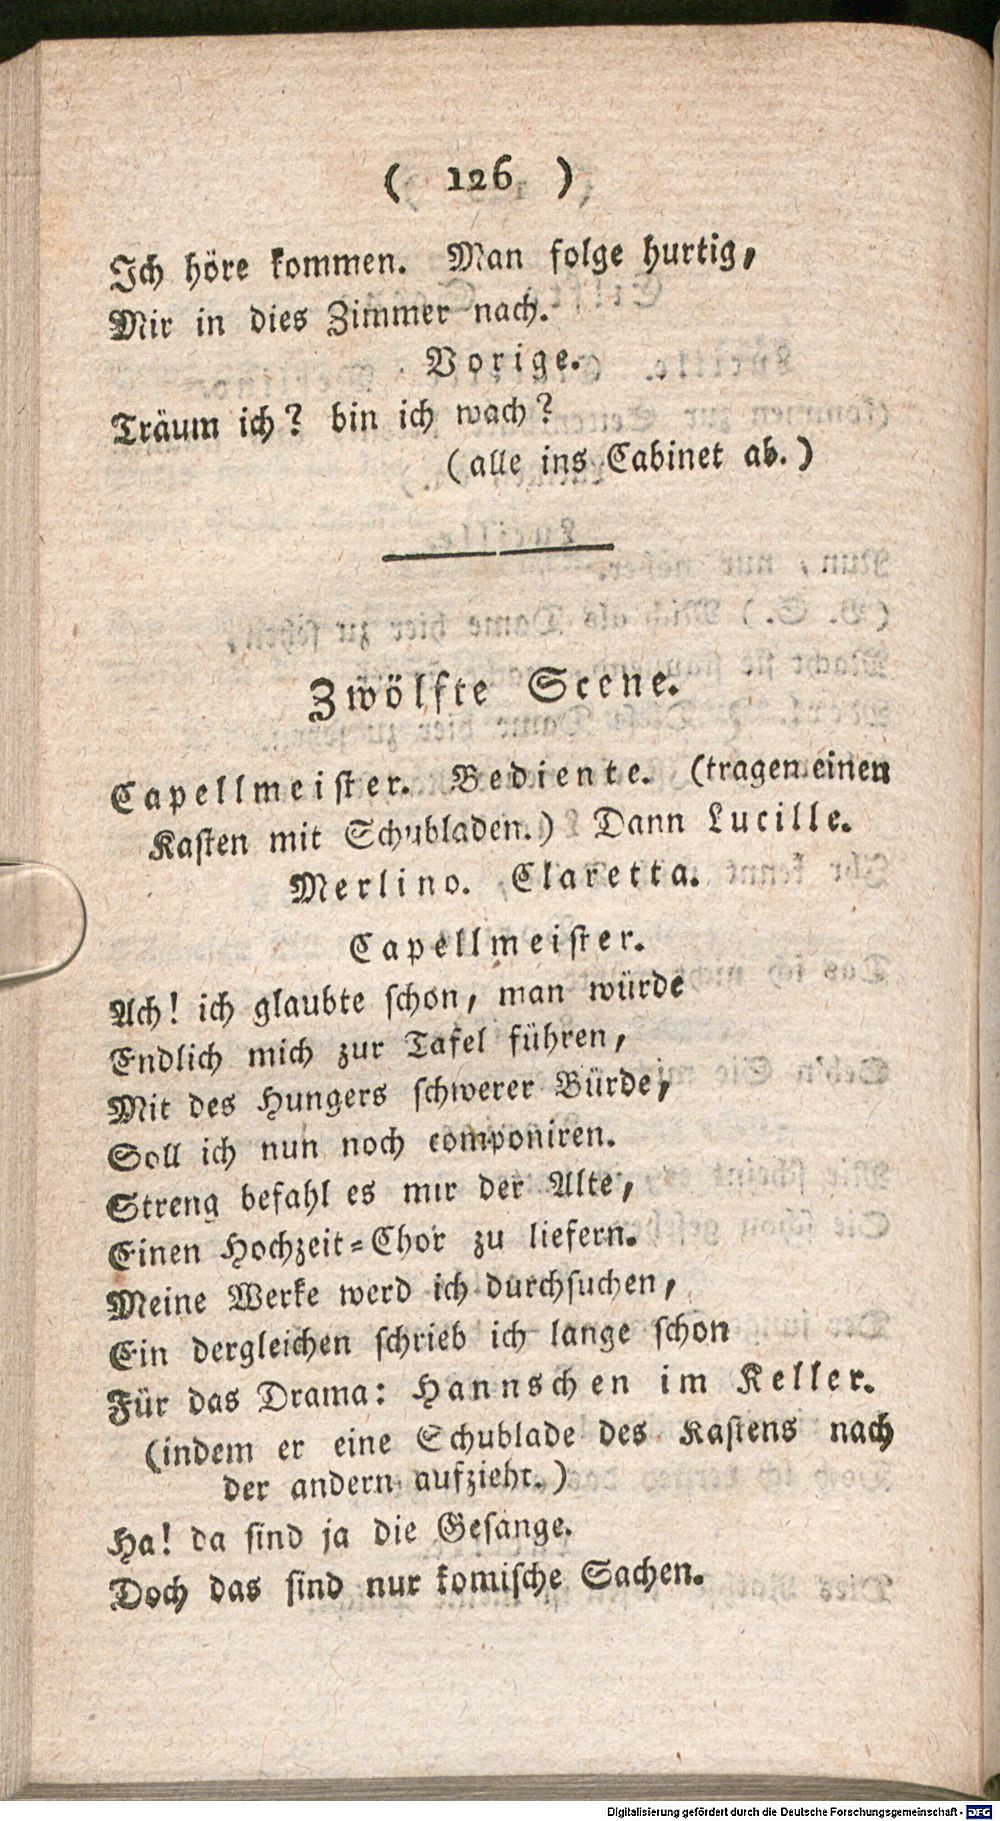 ( 126 )
Ich höre kommen. Man folge hurtig,
Mir in dies Zimmer nach.
Vorige.
Träum ich? bin ich wach?
(alle ins Cabinet ab.)
Zwölfte Scene.
Capellmeister. Bediente. (tragen einen
Kasten mit Schubladen.) Dann Lucille.
Merlino. Claretta.
Capellmeister.
Ach! ich glaubte schon, man würde
Endlich mich zur Tafel führen,
Mit des Hungers schwerer Bürde,
Soll ich nun noch componiren.
Streng befahl es mir der Alte,
Einen Hochzeit-Chor zu liefern.
Meine Werke werd ich durchsuchen,
Ein dergleichen schrieb ich lange schon
Für das Drama: Hannschen im Keller.
(indem er eine Schublade des Kastens nach
der andern aufzieht.)
Ha! da sind ja die Gesänge.
Doch das sind nur komische Sachen.
Digitalisierung gefördert durch die Deutsche Forschungsgemeinschaft - DFG